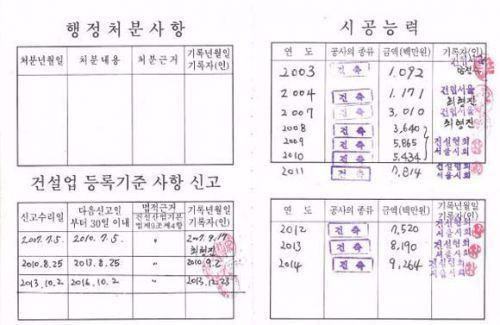 행정처분사항
처분년월일 처분내용 처분근거 기록년월일 기록자(인)
건설업 등록기준 사항 신고
신고수리일 다음신고일부터 30일 이내 법적근거 기록년월일 기록자(인)
건설산업기본법제9조제4항
2007.7.5. 2010.7.5. 〃 2007.9.17
최형진
2010.8.25 2013.8.25 〃 2010.9.2
2013.10.2 2016.10.2 〃 2013.12.23
시공능력
연도 공사의 종류 금액(백만원) 기록자(인)
2003 건축 1,092 건협서울
2004 건축 1,171 건협서울 최형진
2007 건축 3,010 건협서울 최형진
2008 건축 3,640
2009 건축 5,865 건설협회 서울시회
2010 건축 5,434
2011 건축 7,814 건설협회 서울시회
연도 공사의 종류 금액(백만원) 기록년월일 기록자(인)
2012 건축 7,520 건설협회 서울시회
2013 건축 8,190 건설협회 서울시회
2014 건축 9,264 건설협회 서울시회